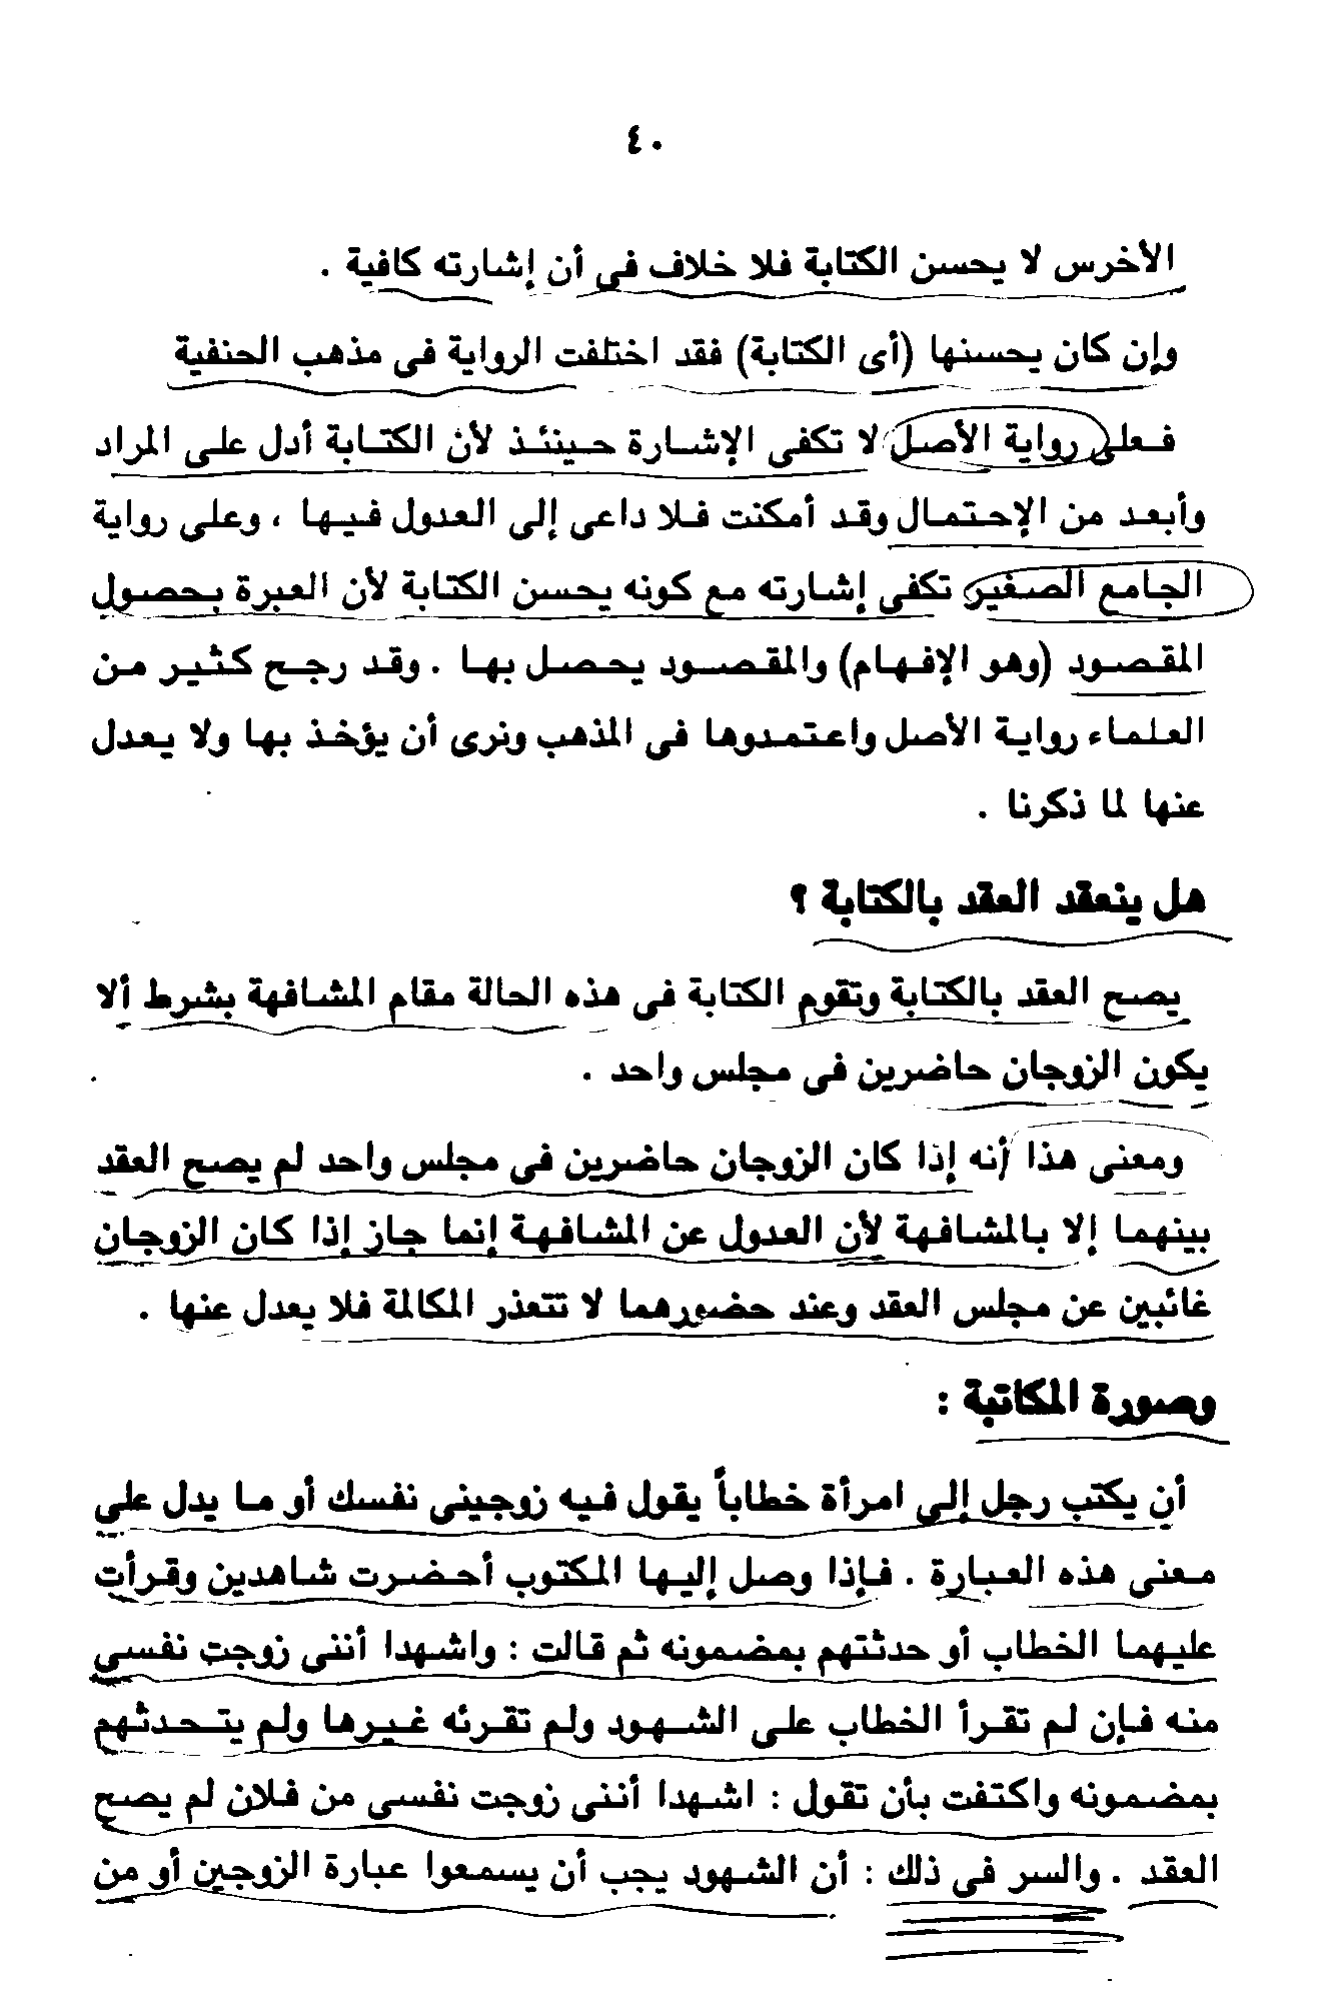 ٤٠
الأخرس لا يحسن الكتابة فلا خلاف فى أن إشارته كافية .
وإن كان يحسنها (أى الكتابة) فقد اختلفت الرواية فى مذهب الحنفية
فعلى رواية الأصل لا تكفى الإشارة حينئذ لأن الكتابة أدل على المراد
وأبعد من الإحتمال وقد أمكنت فلا داعى إلى العدول فيها ، وعلى رواية
الجامع الصغير تكفى إشارته مع كونه يحسن الكتابة لأن العبرة بحصول
المقصود (وهو الإفهام) والمقصود يحصل بها . وقد رجح كثير من
العلماء رواية الأصل واعتمدوها فى المذهب ونرى أن يؤخذ بها ولا يعدل
عنها لما ذكرنا .
هل ينعقد العقد بالكتابة ؟
يصح العقد بالكتابة وتقوم الكتابة فى هذه الحالة مقام المشافهة بشرط ألا
يكون الزوجان حاضرين فى مجلس واحد .
ومعنى هذا أنه إذا كان الزوجان حاضرين فى مجلس واحد لم يصح العقد
بينهما إلا بالمشافهة لأن العدول عن المشافهة إنما جاز إذا كان الزوجان
غائبين عن مجلس العقد وعند حضورهما لا تتعذر المكالمة فلا يعدل عنها .
وصورة المكاتبة :
أن يكتب رجل إلى امرأة خطاباً يقول فيه زوجينى نفسك أو ما يدل على
معنى هذه العبارة . فإذا وصل إليها المكتوب أحضرت شاهدين وقرأت
عليهما الخطاب أو حدثتهم بمضمونه ثم قالت : واشهدا أننى زوجت نفسي
منه فإن لم تقرأ الخطاب على الشهود ولم تقرئه غيرها ولم يتحدثهم
بمضمونه واكتفت بأن تقول : اشهدا أننى زوجت نفسي من فلان لم يصح
العقد . والسر فى ذلك : أن الشهود يجب أن يسمعوا عبارة الزوجين أو من